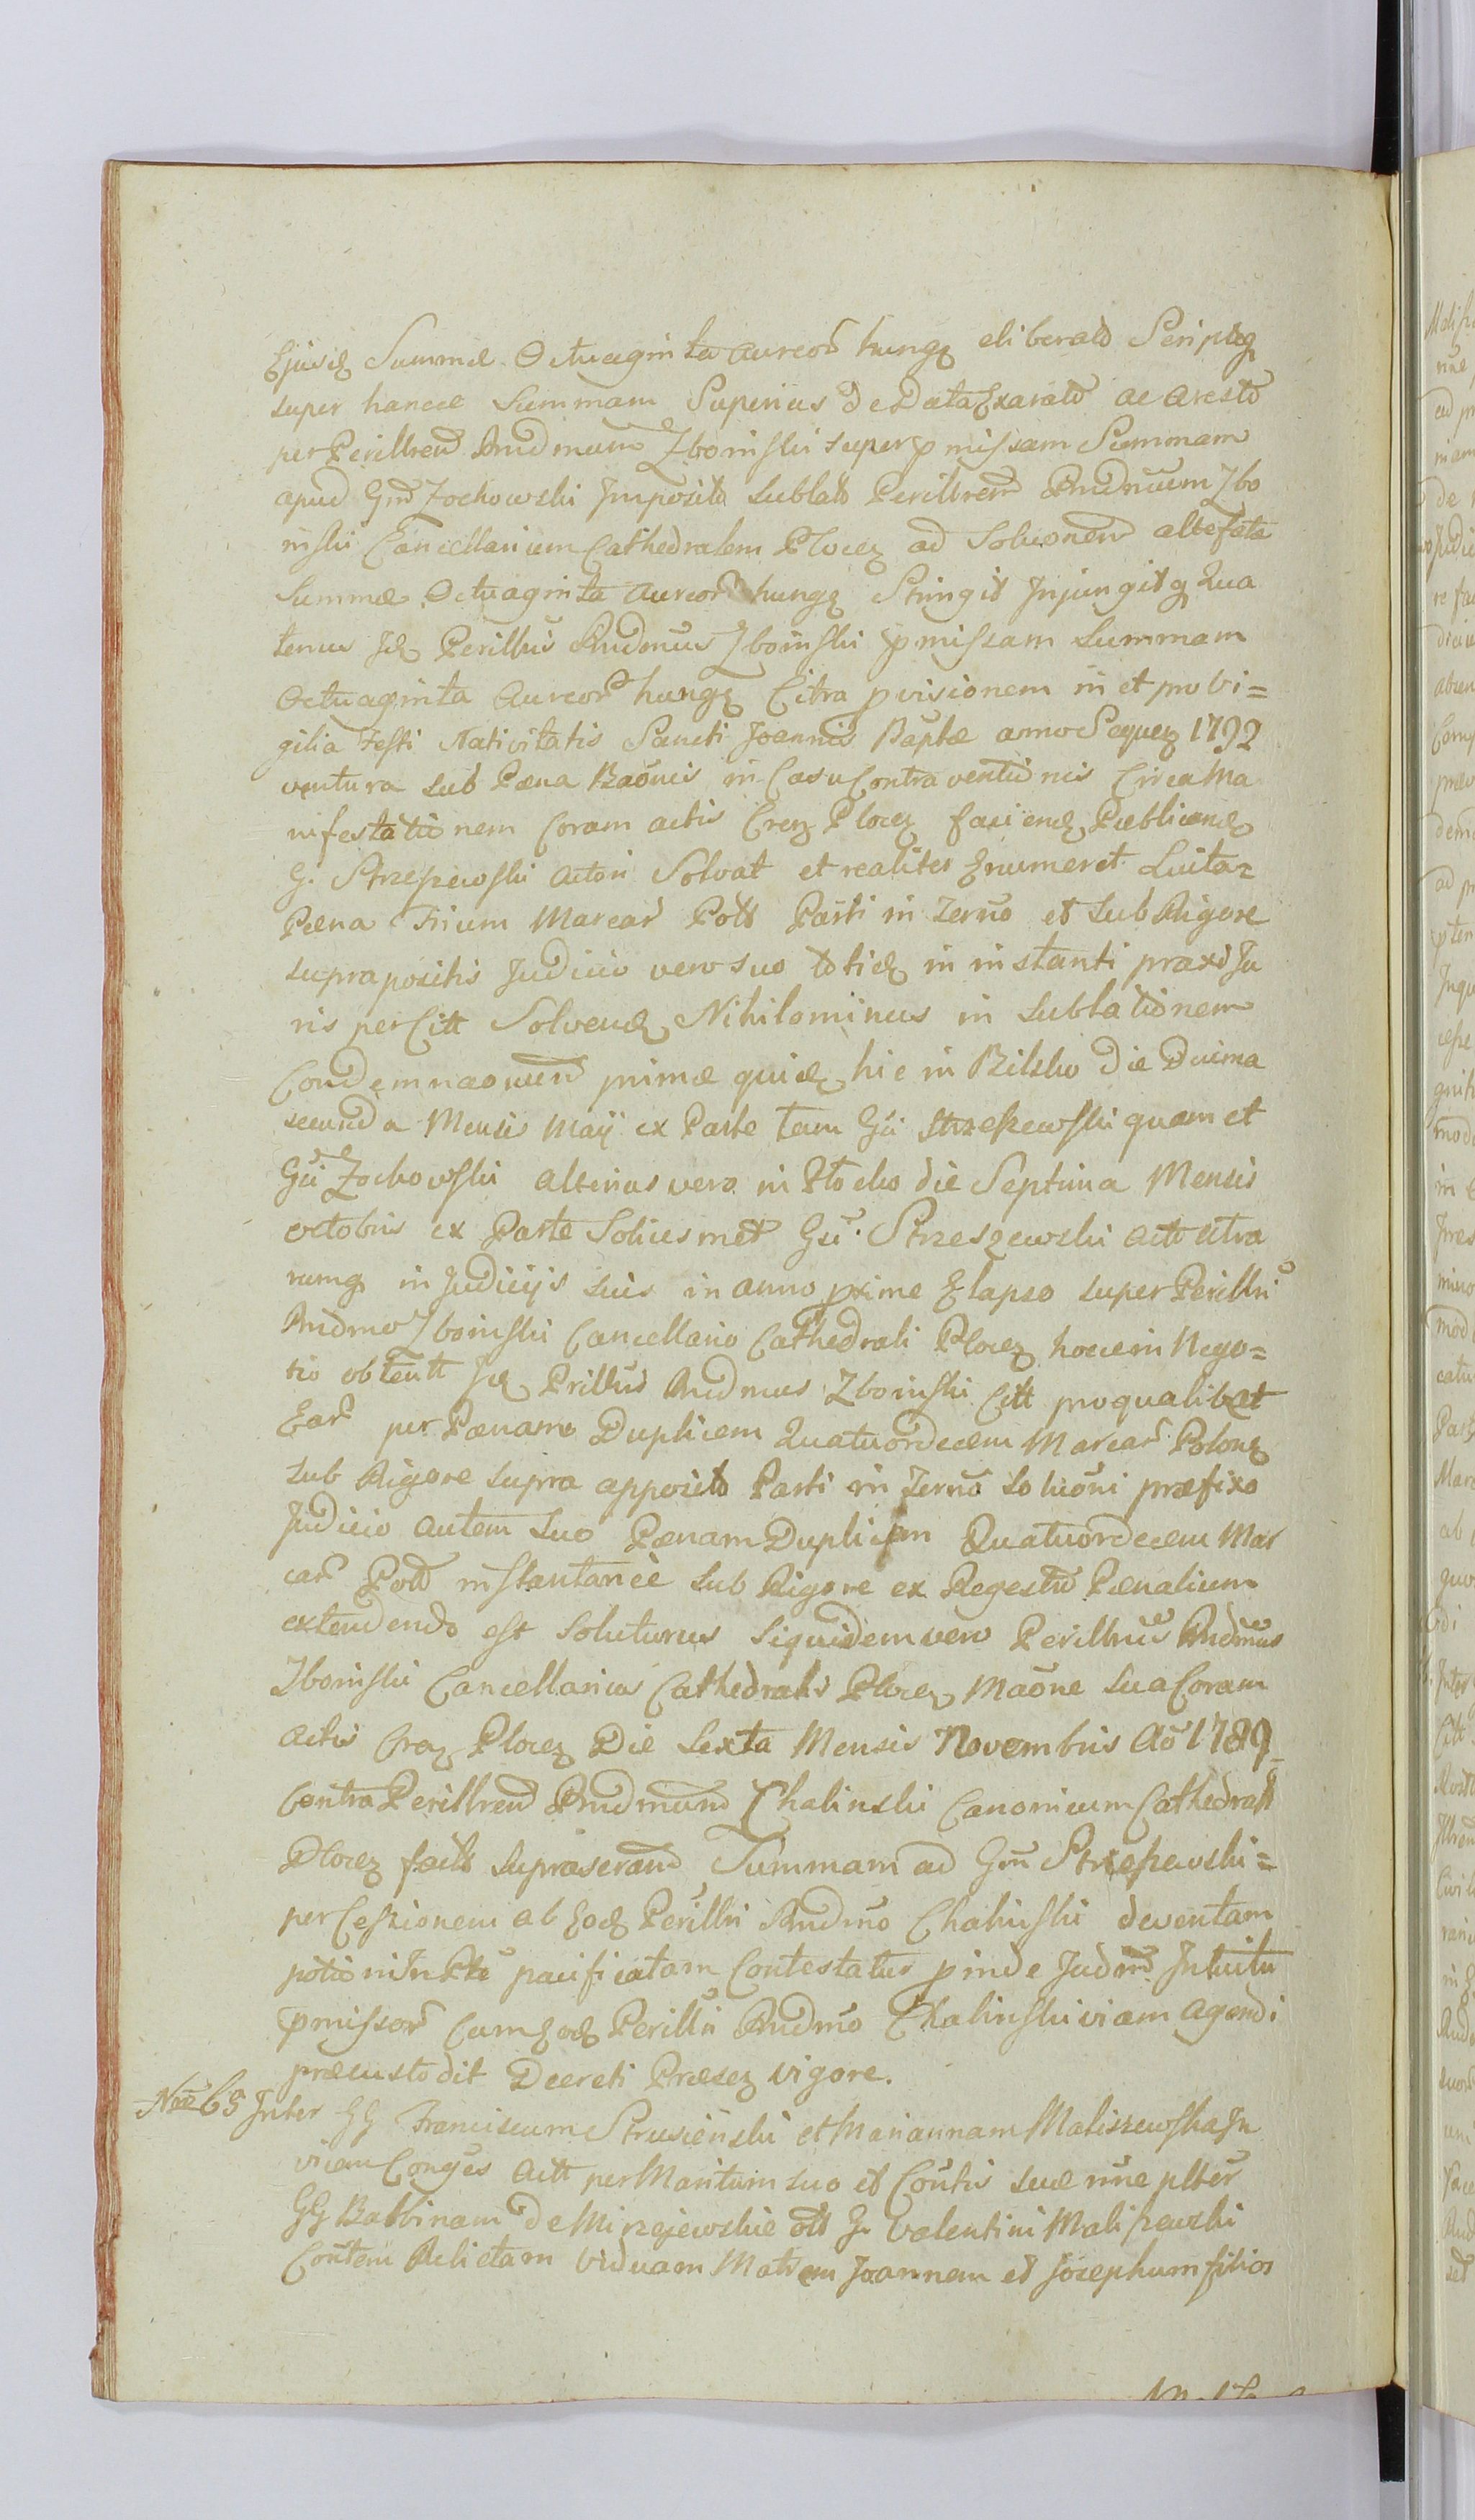 Ejusd Summæ Octuaginta aureor hung eliberato Scriptoq
super hancce Summam Superius de Data Exarato ac aresto
per Perillrem Rndmum Zboinski super pmissam Summam
apud Gm Zochowski Imposito sublato Perillrem Rndmum Zbo
inski Cancellarium Cathedralem Plocen ad Soluonem altefata
Summæ Octuaginta aureor hung Stringit Injungitq Qua
tenus Id Perillris Rndmus Zboinski pmissam Summam
Octuaginta Aureor hung Citra pvisionem in et pro Vi=
gilia Festi Nativitatis Sancti Joannis Baptæ anno Sequen 1792
ventura sub Pæna Baonis in Casu Contraventionis Circa Ma
nifestationem Coram actis Cren Plocen faciend Publicand
G. Strzeszewski Actori Solvat et realiter Enumeret Luita=
Pæna Trium Marcar Poll Parti in Termo et sub Rigore
supra positis Judicio vero suo totid in instanti praxi Ju
ris per Citt Solvend Nihilominus in Sublationem
Condemnaonum primæ quid hic in Bilsko Die Duima
secunda Mensis Maÿ ex Parte tam Gi Strzeszewski quam et
Gi Zochowski alterius vero in Plocko die Septima Mensis
octobris ex Parte Solius met Gi. Strzeszewski Actt utra
rumq in Judicÿs suis in anno pxime Elapso super Perillri
Rndmo Zboinski Cancellario Cathedrali Plocen hocce in Nego=
tio obtentt Id Prillris Rndmus Zboinski Citt pro qualibet
Ear per Pænam Duplicem Quatuordecem Marcar Polon
sub Rigore supra apposito Parti in Termo Soluoni præfixo
Judicio autem Suo Pænam Duplicem Quatuordecem Mar
car Poll instantanee sub Rigore ex Regestro Pænalium
extendendo est soluturus siquidem vero Perillris Rndmus
Zboinski Cancellarius Cathedralis Plocen Maone Sua Coram
Actis Cren Plocen Die Sexta Mensis Novembris Ao 1789
Contra Perillrem Rndmum Chalinski Canonicum Cathedral
Plocen factt supra Summam ad Gm Strzeszewski=
per Cessionem ab Eod Perillri Rndmo Chalinski deventam
pacificatam Contestatus pinde Judm Intuitu
pmissor Cum Eod Perillri Rndmo Chalinski viam agendi
præcustodit Decreti Præsen vigore.
Nro 65 Inter GG Franciscum Strusienski et Mariannam Maliszewska In
vicem Conges Actt per Maritum suo et Contis suæ nne plter
GG Balbinam de Mirzejewskie olt G. Valentini Maliszewski
Contem Relictam Viduam Matrem Joannem et Josephum filios